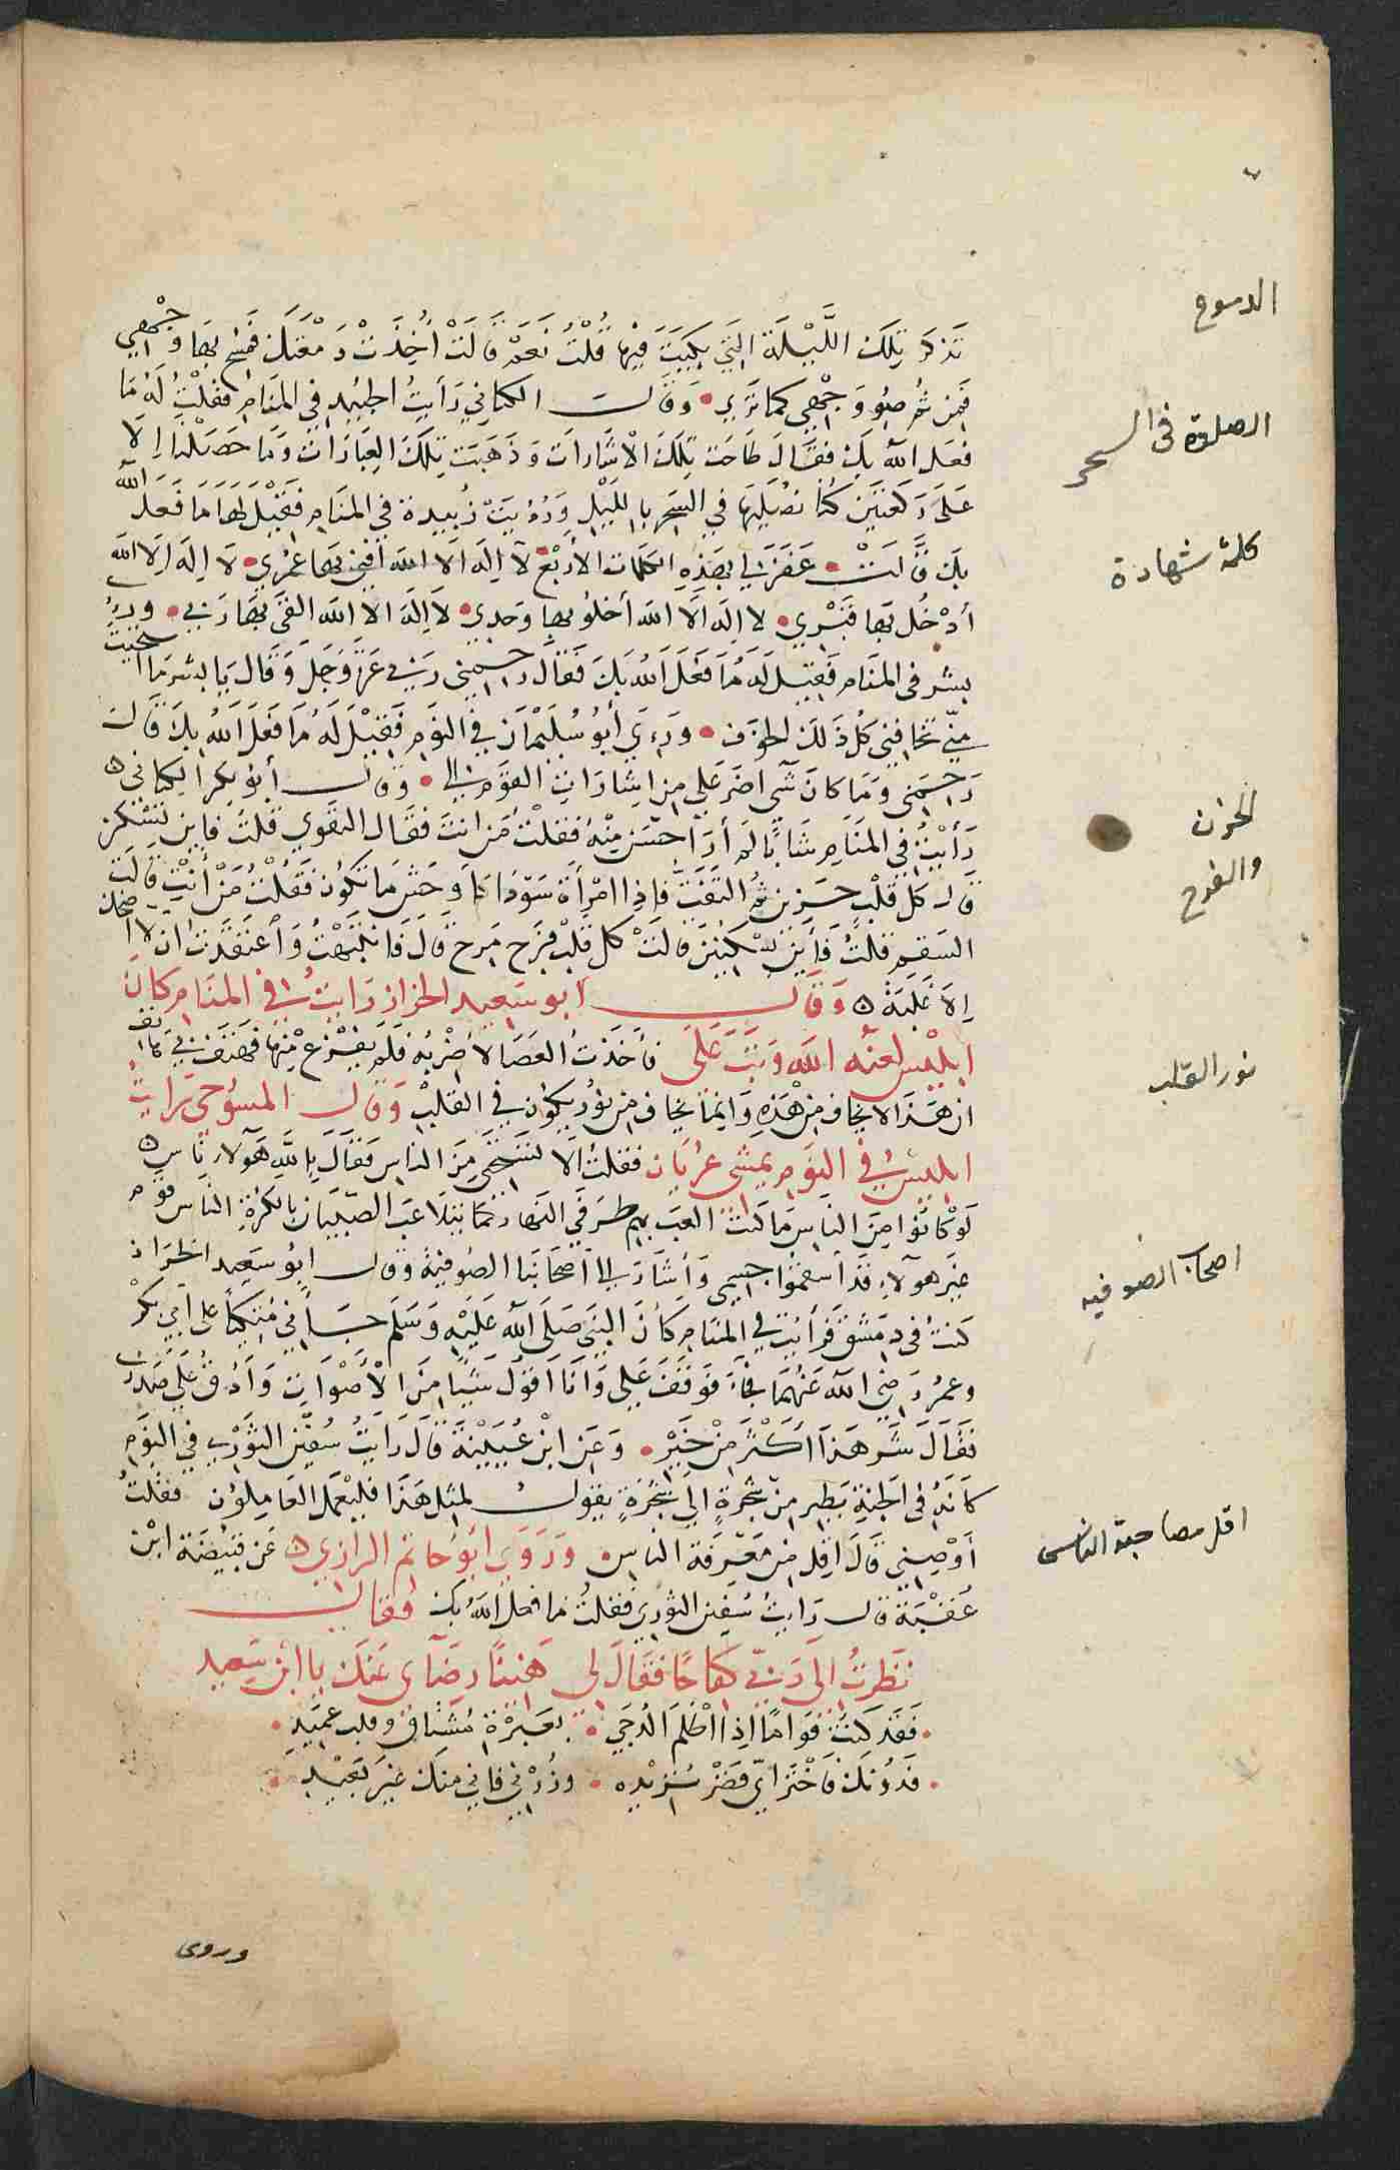 الدموع
تذكر تلك الليلة التي بكيت فيها قلت نعم قالت أخذت دمعتك فمسح بها وجهي
فمن ثم ضوء وجهي كما تري وقالت الكتاني رأيت الجنيد في المنام فقلت له ما
الصلوة فى السحر
فعل الله بك فقال طاحت تلك الاشارات وذهبت تلك العبارات وما حصلنا الا
على ركعتين كنا نصليها في السحر بالليل ورؤيت زبيدة في المنام فقيل لها ما فعل الله
كلمة شهادة
بك قالت غفر لي بهذه الكلمات الأربع لا اله الا الله أفني بها عمري لا اله الا الله
أدخل بها قبري لا اله الا الله أخلو بها وحدي لا اله الا الله القى بها ربي وري
بشر في المنام فقيل له ما فعل الله بك فقال رحمني ربي عز وجل وقال يا بشر ما استحييت
مني تخافني كل ذلك الخوف ورءي أبو سليمان في النوم فقيل له ما فعل الله بك قال
رحمني وما كان شي اضر علي من اشارات القوم الي وقال أبو بكر الكتاني
الحزن
والفرح
رأيت في المنام شابا لم أر أحسن منه فقلت من انت فقال التقوي قلت فاين تسكن
قال كل قلب حزين ثم التفت فاذا امرأة سوداء كأوحش ما تكون فقلت من أنت قالت
السقم قلت فأين تسكنين قالت كل قلب فرح مرح قال فانتبهت واعتقدت ان لا أضحك
الا غلبة وقال ابو سعيد الخزاز رايت في المنام كان
ابليس لعنه الله وثب علي فأخذت العصا لأضربه فلم يفزع منها فهتف بي هاتف
نور القلب
ان هذا لا يخاف من هذه وانما يخاف من نور يكون في القلب وقال المسوحي رايت
ابليس في النوم يمشي عريان فقلت ألا تستحي من الناس فقال بالله هولاء ناس
لو كانوا من الناس ما كنت العب بهم طرفي النهار كما يتلاعب الصبيان بالكرة الناس قوم
اصحاب الصوفيه
غير هولاء قد أسقموا جسمي وأشار الى أصحابنا الصوفية وقال ابو سعيد الخراز
كنت في دمشق فرأيت في المنام كان النبي صلى الله عليه وسلم جاءني متكيا على أبي بكر
وعمر رضي الله عنهما فجاء فوقف علي وأنا اقول شيئا من الأصوات وأدق على صدري
فقال شر هذا أكثر من خير وعن ابن عيينة قال رايت سفين الثوري في النوم
كانه في الجنة يطير من شجرة الى شجرة يقول لمثل هذا فليعمل العاملون فقلت
اقل مصاحبة الناس
أوصيني قال اقل من معرفة الناس وروى ابو حاتم الرازي عن قبيصة ابن
عقبة قال رايت سفين الثوري فقلت ما فعل الله بك فقال
نظرت الى ربي كفاحا فقال لي هنيئا رضآى عنك يا ابن سعيد
فقد كنت قواما اذا اظلم الدجي بعبرة مشتاق وقلب عميد
فدونك فاختر اي قصر تريده وزرني فاني منك غير بعيد
وروى